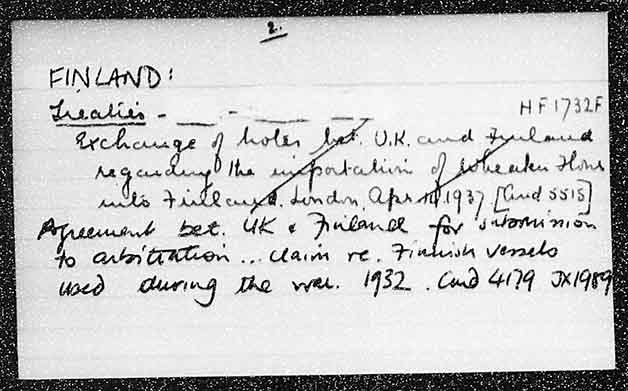 2.
FINLAND:
Treaties - __ - __ __
HF1732F
Exchange of Notes bet. U.K. and Finland
regarding the importation of Wheaten Flour
into Finland. London, Apr 1937 [Cmd 5515]
Agreement bet. UK & Finland for submission
to arbitration ... claim re. Finnish vessels
used during the war. 1932. Cmd 4179 JX1989